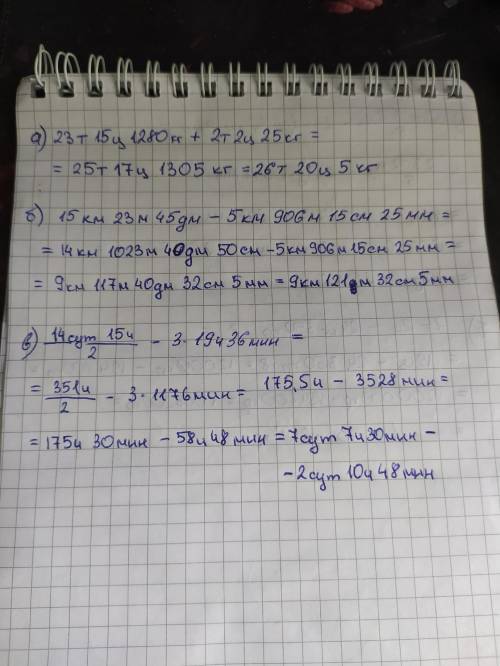 а) 23т 15ц 1280кг + 2т 2ц 25кг =
= 25т 17ц 1305 кг = 26т 20ц 5 кг
б) 15 км 23м 45дм - 5км 906м 15см 25мм =
= 14км 1023м 40дм 50см - 5км 906м 15см 25мм =
= 9км 117м 40дм 32см 5мм = 9км 121м 32см 5мм
в) 14сут 15ч / 2 - 3 · 19ч 36мин =
= 351ч / 2 - 3 · 1176мин = 175,5ч - 3528мин =
= 175ч 30мин - 58ч 48мин = 7сут 7ч 30мин -
- 2сут 10ч 48мин